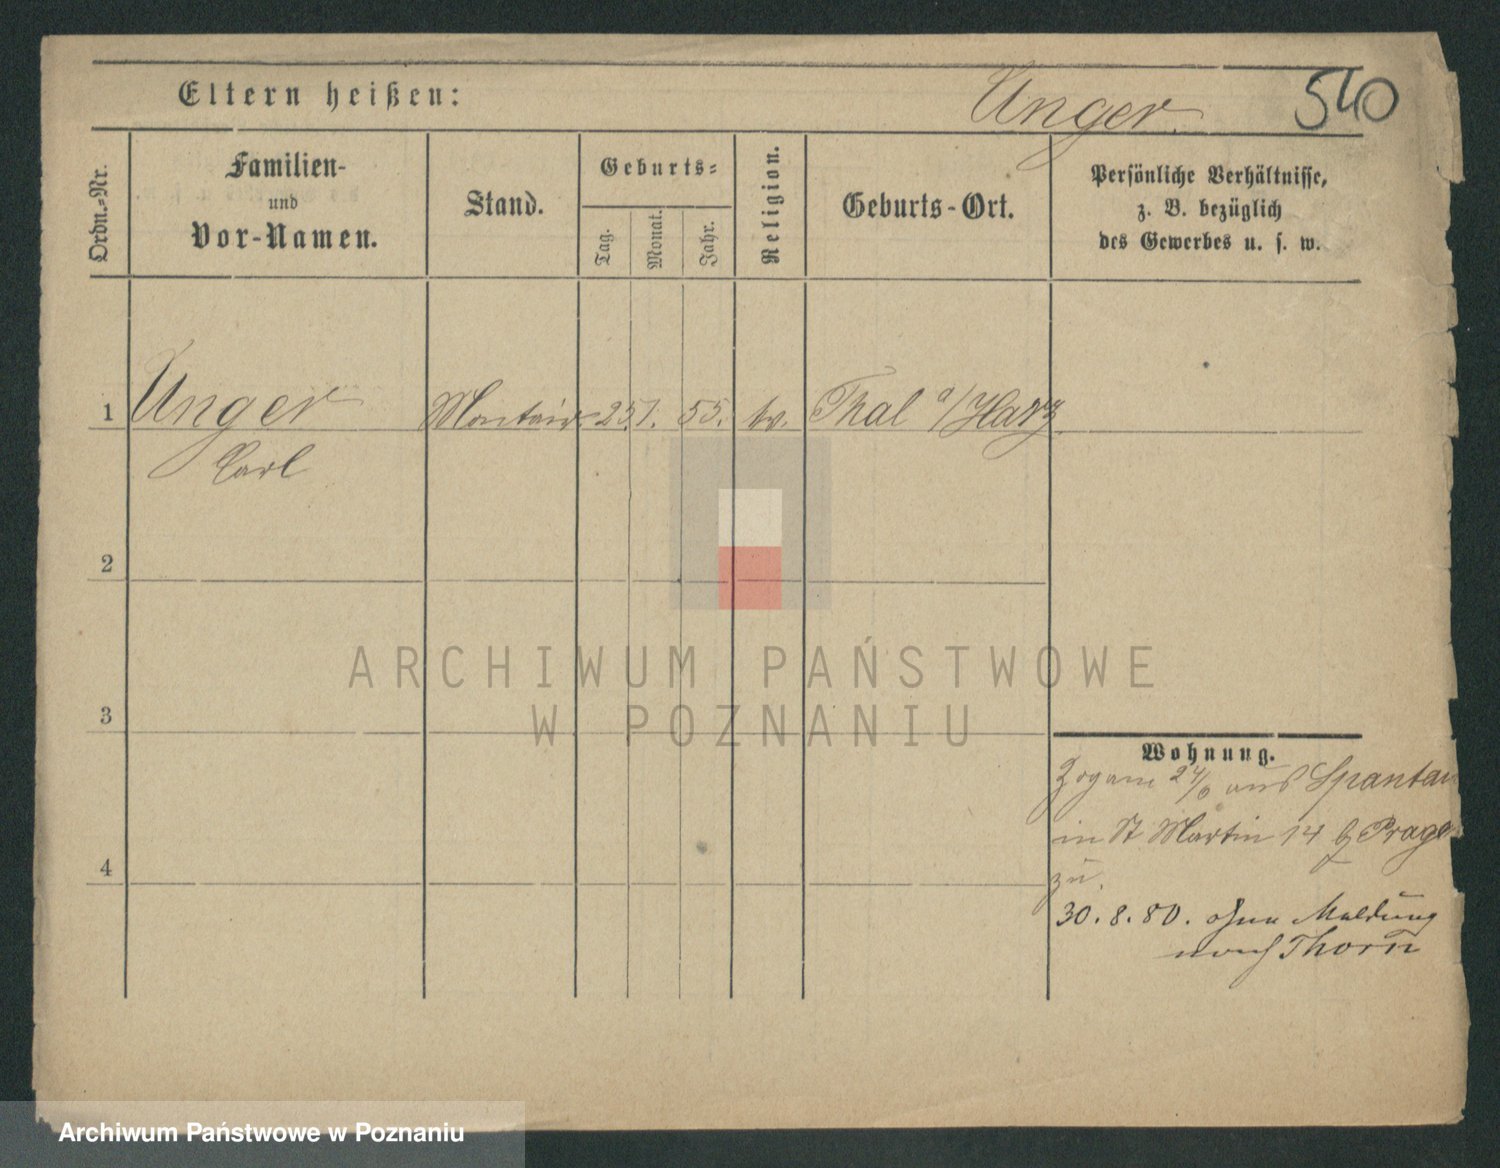 Eltern heißen:
Unger
540
Ordn.-Nr.
Familien-
und
Vor-Namen.
Stand.
Geburts-
Tag.
Monat.
Jahr.
Religion.
Geburts-Ort.
Persönliche Verhältnisse,
z. B. bezüglich
des Gewerbes u. s. w.
1 Unger 25 1. 55. ev. Thal a/Harz
Carl
2
3
4
ARCHIWUM PAŃSTWOWE
W POZNANIU
Wohnung.
24/6 aus
in St Martin 14 b Prager
zu.
30. 8. 80. ohne Meldung
nach Thorn
Archiwum Państwowe w Poznaniu